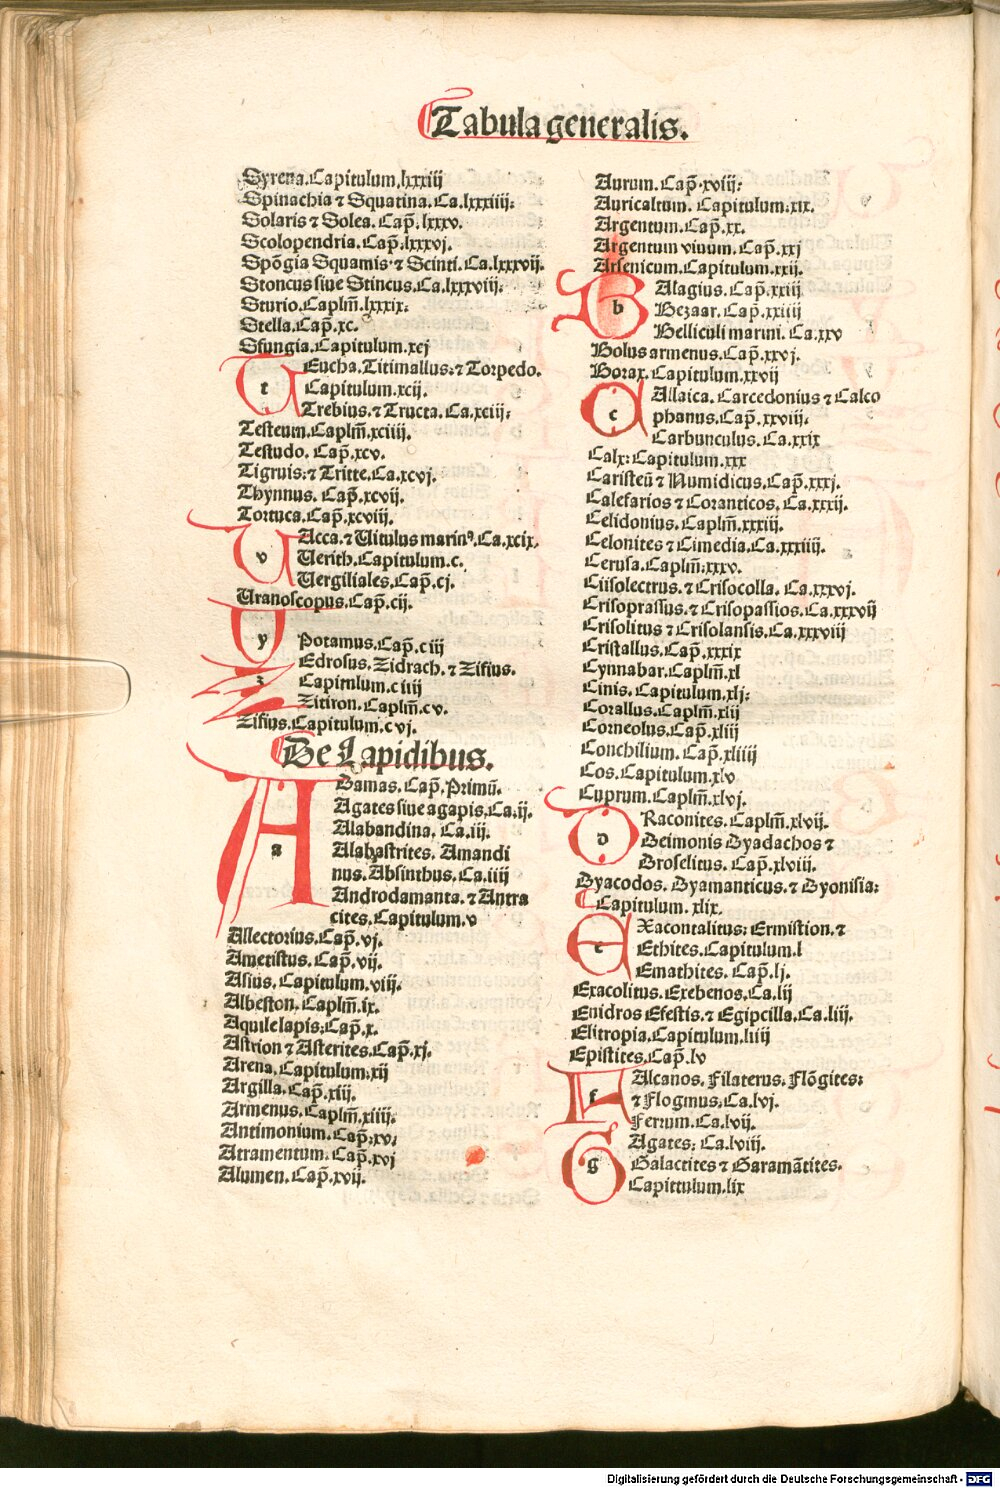 Tabula generalis.
Syrena. Capitulum. lxxxiij
Spinachia ⁊ Squatina. Ca. lxxxiiij:
Solaris ⁊ Solea. Cap̃. lxxxv.
Scolopendria. Cap̃. lxxxvj.
Spõgia Squamis ⁊ Scinti. Ca. lxxxvij.
Stoncus siue Stincus. Ca. lxxxviij.
Sturio. Caplm̃. lxxxix.
Stella. Cap̃. xc.
Sfungia. Capitulum. xcj
t Eucha. Titimallus: ⁊ Torpedo.
Capitulum. xcij.
Trebius. ⁊ Tructa. Ca. xciij:
Testeum. Caplm̃. xciiij.
Testudo. Cap̃. xcv.
Tigruis: ⁊ Tritte. Ca. xcvj.
Thynnus. Cap̃. xcvij.
Tortuca. Cap̃. xcviij.
v Acca. ⁊ Uitulus marinꝰ. Ca. xcix.
Uerith. Capitulum. c.
Uergiliales. Cap̃. cj.
Uranoscopus. Cap̃. cij.
y Potamus. Cap̃. ciij
z Edrosus. Zidrach. ⁊ Zifius.
Capitnlum. ciiij
Zitiron. Caplm̃. cv.
Zifius. Capitulum. cvj.
De Lapidibus.
a Damas. Cap̃. Primũ.
Agates siue agapis. Ca. ij.
Alabandina. Ca. iij.
Alabastrites. Amandi
nus. Absinthus. Ca. iiij
Androdamanta. ⁊ Antra
cites. Capitulum. v
Allectorius. Cap̃. vj.
Ametistus. Cap̃. vij.
Asius. Capitulum. viij.
Albeston. Caplm̃. ix.
Aquile lapis: Cap̃. x.
Astrion ⁊ Asterites. Cap̃. xj.
Arena. Capitulum: xij
Argilla. Cap̃. xiij.
Armenus. Caplm̃. xiiij.
Antimonium. Cap̃: xv:
Atramentum. Cap̃. xvj
Alumen. Cap̃. xvij.
Aurum. Cap̃. xviij:
Auricalrum. Capitulum: xix.
Argentum. Cap̃. xx.
Argentum vinum. Cap̃. xxj
Arsenicum. Capitulum. xxij.
b Alagius. Cap̃. xxiij
Bezaar. Cap̃. xxiiij
Belliculi marini. Ca. xxv
Bolus armenus. Cap̃. xxvj.
Borax. Capitulum. xxvij
c Allaica. Carcedonius ⁊ Calco
phanus. Cap̃. xxviij:
Carbunculus. Ca. xxix
Calx: Capitulum. xxx
Caristeũ ⁊ Numidicus. Cap̃. xxxj.
Calefarios ⁊ Coranticos. Ca. xxxij.
Celidonius. Caplm̃. xxxiij.
Celonites ⁊ Cimedia. Ca. xxxiiij.
Cerusa. Caplm̃: xxxv.
Ciisolectrus. ⁊ Crisocolla. Ca. xxxvj.
Crisoprassus. ⁊ Crisopassios. Ca. xxxvij
Crisolitus ⁊ Crisolansis. Ca. xxxviij
Cristallus. Cap̃. xxxix
Cynnabar. Caplm̃. xl
Cinis. Capitulum. xlj:
Corallus. Caplm̃. xlij
Corneolus. Cap̃. xliij
Conchilium. Cap̃. xliiij
Cos. Capitulum. xlv
Cuprum. Caplm̃. xlvj.
d Raconites. Caplm̃. xlvij.
Deimonis Dyadachos ⁊
Droselitus. Cap̃. xlviij.
Dyacodos. Dyamanticus. ⁊ Dyonisia:
Capitulum. xlix.
e Xacontalitus: Ermistion. ⁊
Ethites. Capitulum. l
Emathites. Cap̃. lj.
Exacolitus. Exebenos. Ca. lij
Enidros Efestis. ⁊ Egipcilla. Ca. liij.
Elitropia. Capitulum. liiij
Epistites. Cap̃. lv
f Alcanos. Filaterus. Flõgites:
⁊ Flogmus. Ca. lvj.
Ferum. Ca. lvij.
g Agates: Ca. lviij.
Galactites ⁊ Garamãtites.
Capittulum. lix
Digitalisierung gefördert durch die Deutsche Forschungsgemeinschaft - DFG